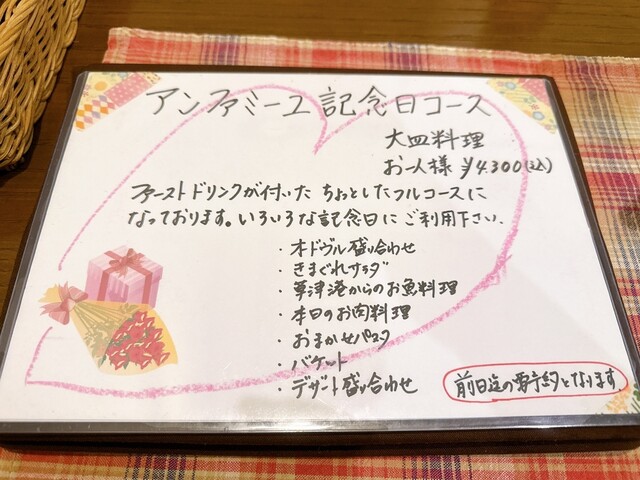 アンファミーユ記念日コース
大皿料理
お一人様 ¥4.300(税込)
ファーストドリンクが付いた ちょっとしたフルコースに
なっております。いろいろな記念日にご利用下さい。
・オードヴル盛り合わせ
・きまぐれサラダ
・草津港からのお魚料理
・本日のお肉料理
・おまかせパスタ
・バケット
・デザート盛り合わせ
前日迄の要予約となります